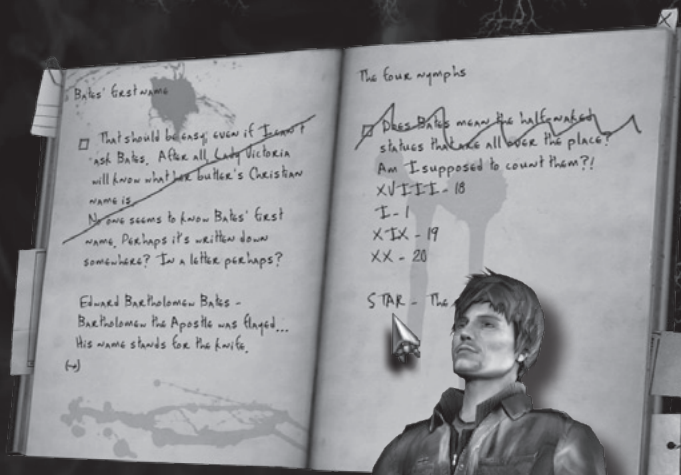 Bates' first name
That should be easy, even if I can't
ask Bates. After all, Lady Victoria
will know what her butler's Christian
name is.
No one seems to know Bates' first
name. Perhaps it's written down
somewhere? In a letter perhaps?
Edward Bartholomew Bates -
Bartholomew the Apostle was flayed...
His name stands for the knife.
(→)
The four nymphs
Does Bates mean the half-naked
statues that are all over the place?
Am I supposed to count them?!
XVIIII - 18
I - 1
XIX - 19
XX - 20
STAR - The
X